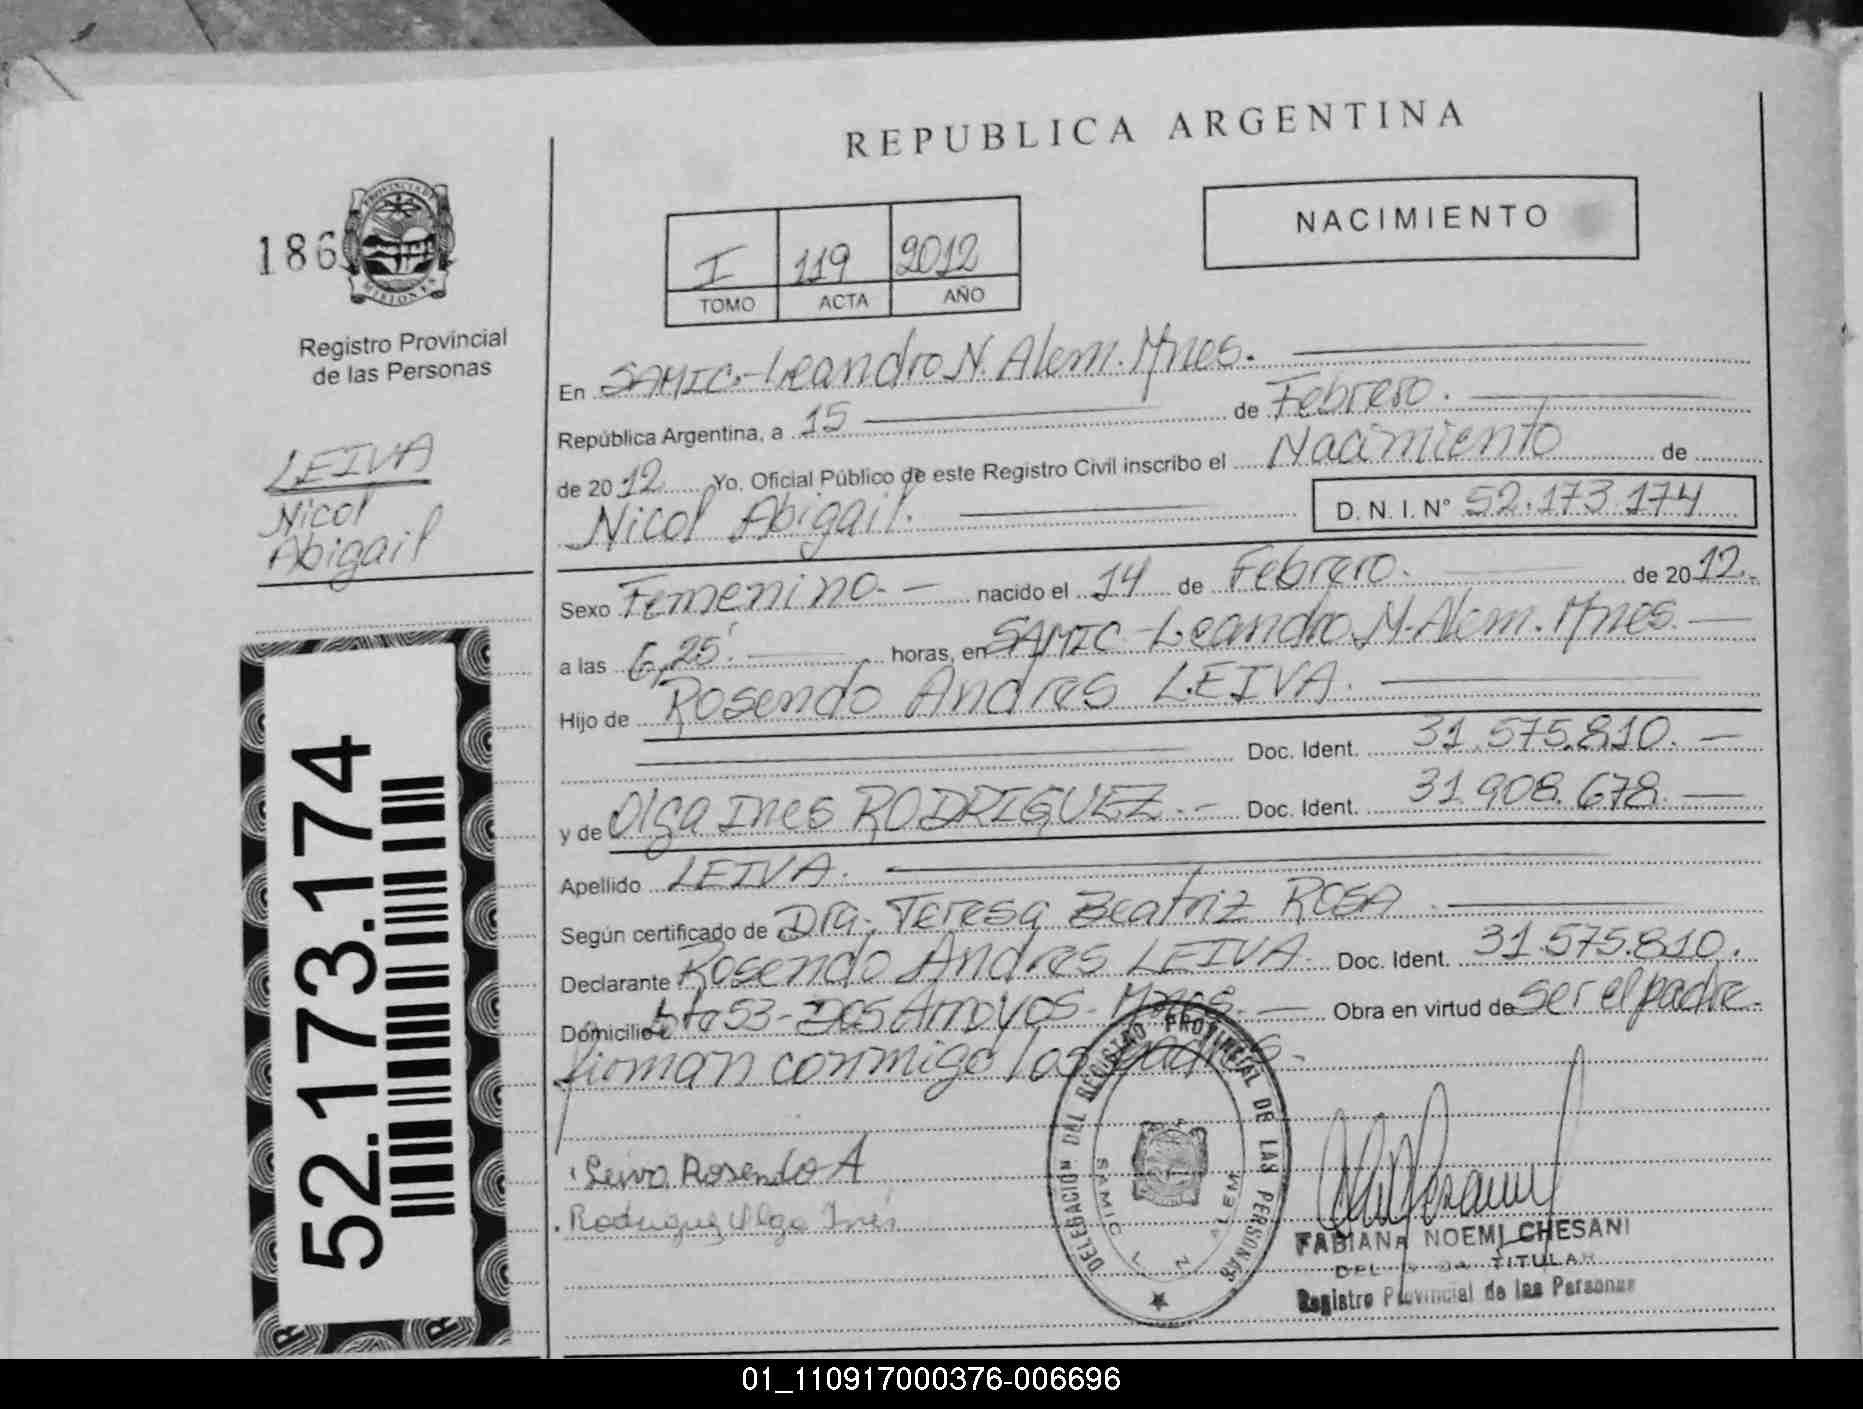 REPUBLICA ARGENTINA
NACIMIENTO
186
PROVINCIA DE
MISIONES
Registro Provincial
de las Personas
I 119 2012
TOMO ACTA AÑO
LEIVA
Nicol
Abigail
52.173.174
En SAMIC.-Leandro N. Alem. Mnes.
República Argentina, a 15 de Febrero.
de 2012 Yo, Oficial Público de este Registro Civil inscribo el Nacimiento de
Nicol Abigail. D. N. I. N° 52.173.174
Sexo Femenino.- nacido el 14 de Febrero. de 2012.
a las 6,25'. horas, en SAMIC-Leandro N. Alem. Mnes.
Hijo de Rosendo Andres LEIVA.
Doc. Ident. 31.575.810.-
y de Olga Ines RODRIGUEZ.- Doc. Ident. 31.908.678.-
Apellido LEIVA.
Según certificado de Dra. Teresa Beatriz ROSA
Declarante Rosendo Andres LEIVA. Doc. Ident. 31.575.810.
Domicilio 53-Dos Arroyos-Mnes.- Obra en virtud de ser el padre.
firman conmigo los padres.-
Leiva Rosendo A
Rodriguez Olga Inés
DELEGACIÓN DAL REGISTRO PROVINCIAL DE LAS PERSONAS
SAMIC L. N. ALEM
FABIANA NOEMI CHESANI
TITULAR
Registro Provincial de las Personas
01_110917000376-006696